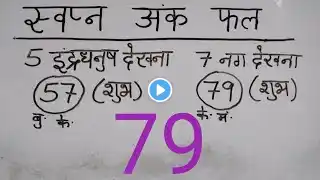 स्वप्न अंक फल
5 इंद्रधनुष देखना 7 नग देखना
57 (शुभ) 79 (शुभ)
बु. के. के. मं.
79